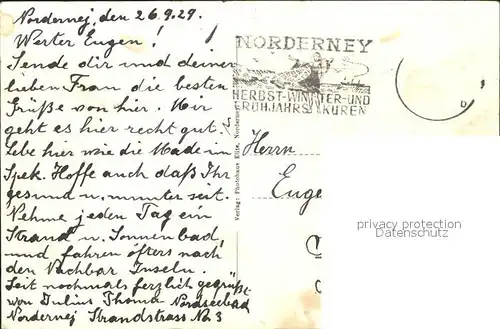 Nordernej, den 26.9.29.
Werter Eugen!
Sende dir und deiner
lieben Frau die besten
Grüße von hier. Mir
geht es hier recht gut.
Lebe hier wie die Made im
Spek. Hoffe auch daß Ihr
gesund u. munter seit.
Nehme jeden Tag ein
Strand u. Sonnenbad,
und fahren öfters nach
den Nachbar Inseln.
Seit nochmals herzlich gegrüßt
von Julius Thoma Nordseebad
Nordernej Strandstrass No. 3
NORDERNEY
HERBST-WINTER-UND
FRÜHJAHRS KUREN
Verlag: Photohaus
Herrn
Euge
privacy protection
Datenschutz